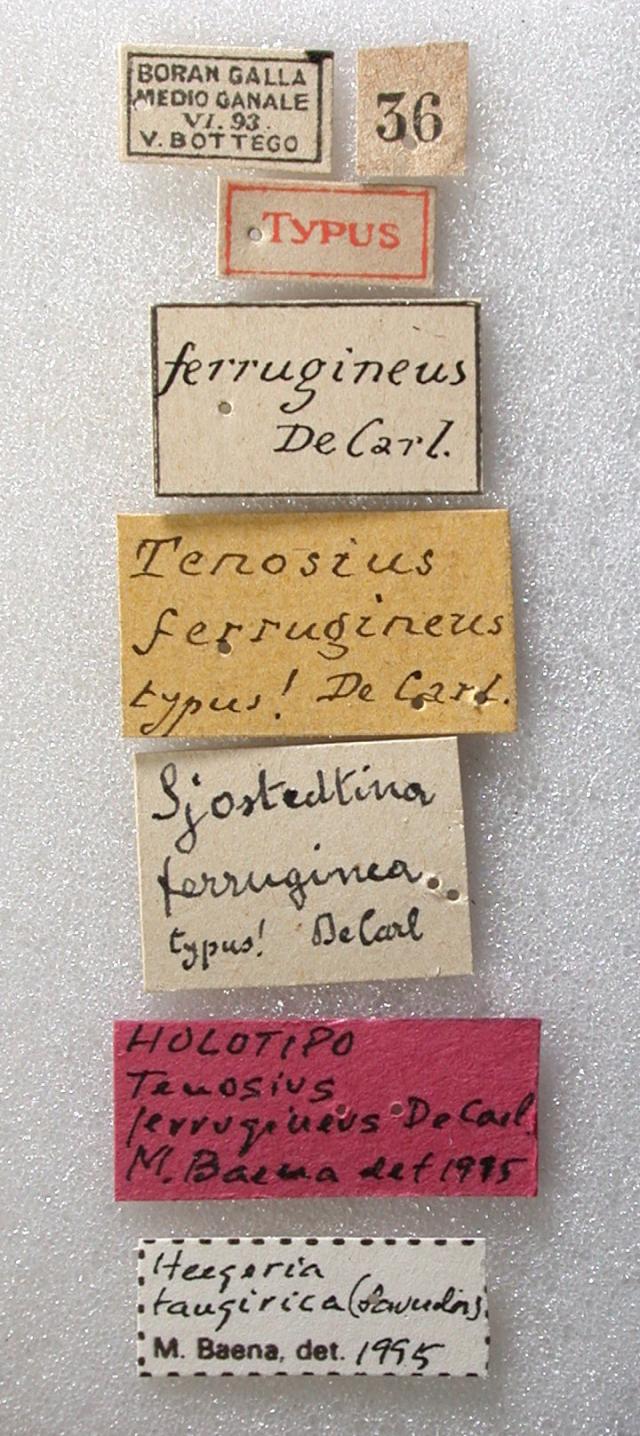 BORAN GALLA
MEDIO GANALE
VI. 93.
V. BOTTEGO
36
TYPUS
ferrugineus
De Carl.
Tenosius
ferrugineus
typus! De Carl.
Sjostedtina
ferruginea
typus! De Carl
HOLOTIPO
Tenosius
ferrugineus De Carl.
M. Baena det 1995
Heegeria
tangirica (Saunders)
M. Baena, det. 1995